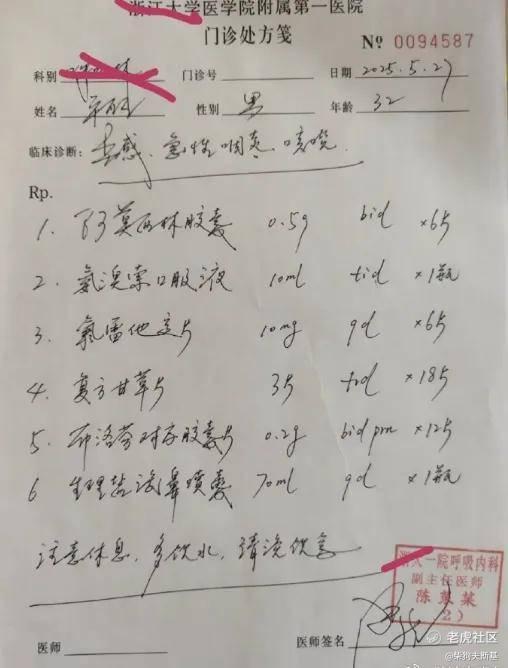 浙江大学医学院附属第一医院
门诊处方笺
№ 0094587
科别 门诊号 日期 2025.5.27
姓名 性别 男 年龄 32
临床诊断： 急性咽炎、咳嗽
Rp.
1. 阿莫西林胶囊 0.5g bid ×6片
2. 氨溴索口服液 10ml tid ×1瓶
3. 氯雷他定片 10mg qd ×6片
4. 复方甘草片 3片 tid ×18片
5. 布洛芬 胶囊 0.2g bid prn ×12片
6 生理盐 鼻喷 70ml qd ×1瓶
注意休息，多饮水，清淡饮食
浙大一院呼吸内科
副主任医师
陈
医师 医师签名
老虎社区
@柴狗夫斯基